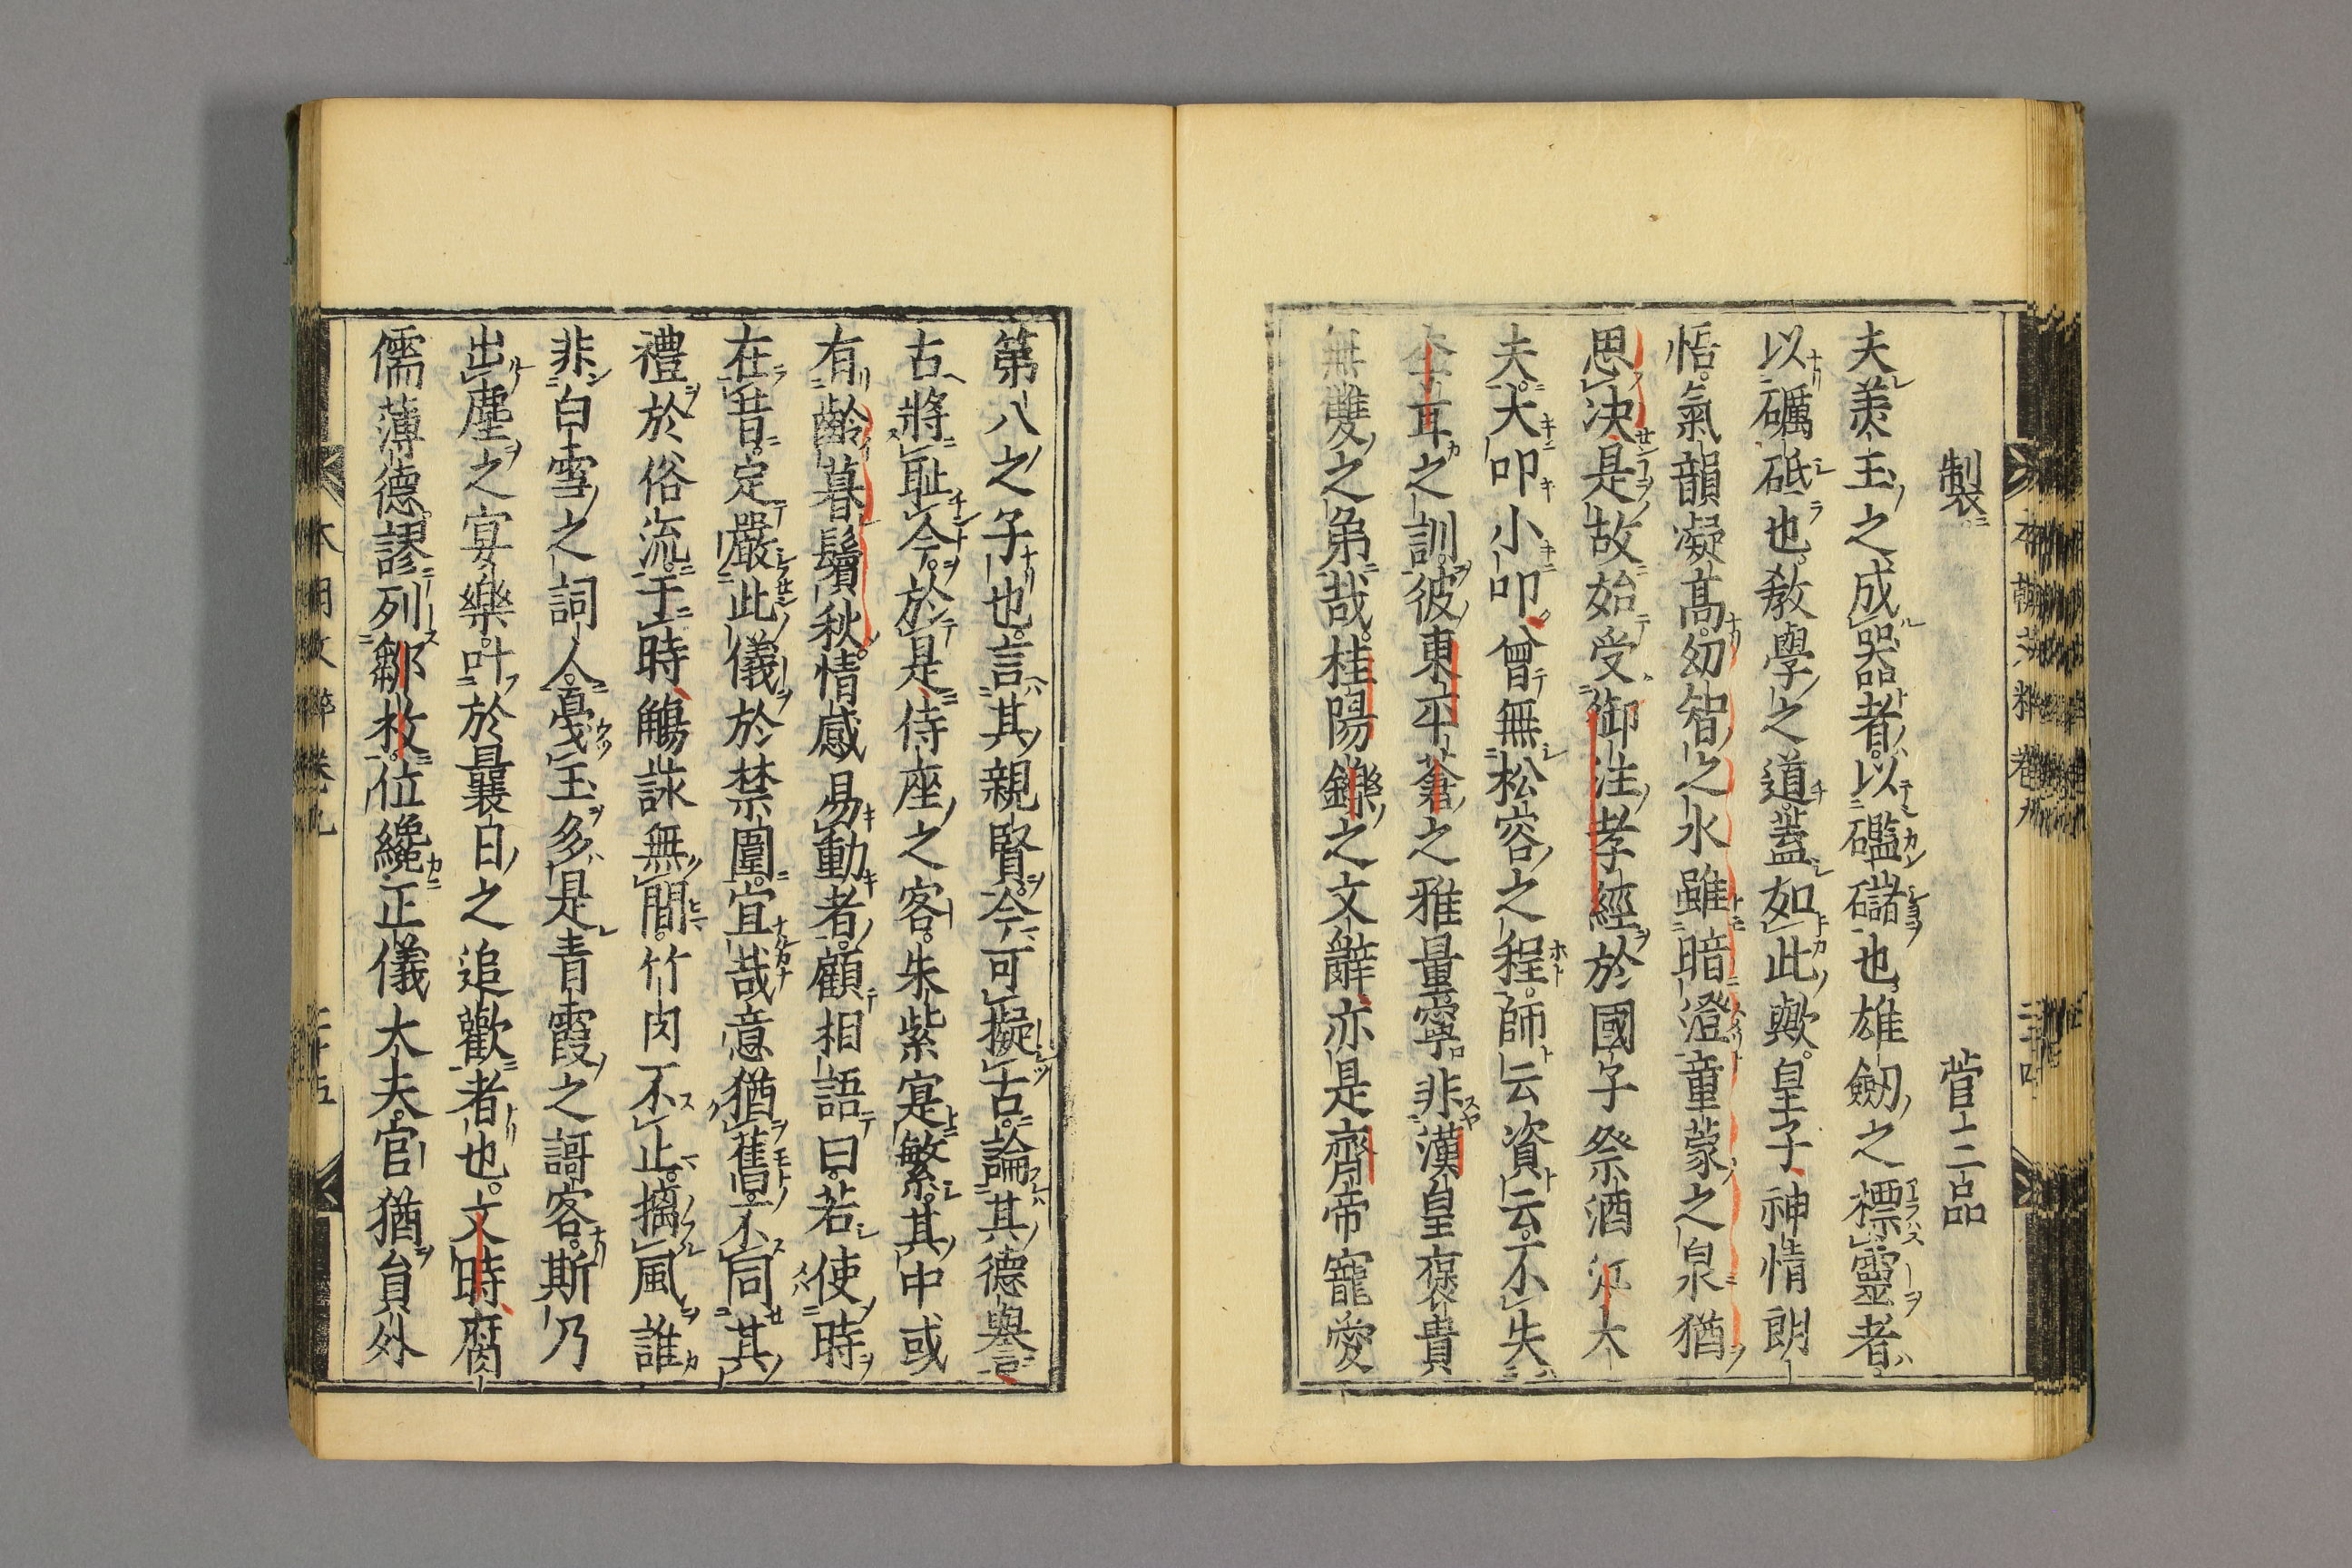 製 菅三品
夫羨玉之成器者以礛䃴也雄劒之標靈者
以礪砥也教學之道蓋如此歟皇子神情朗
悟氣韻凝高幼智之水雖暗澄童蒙之泉猶
思决是故始受御注孝經於國子祭酒江大
夫大叩小叩曾無松容之程師云資云不失
之訓彼東平蒼之雅量寧非漢皇褒貴
無雙之弟哉桂陽鑠之文辭亦是齊帝寵愛
第八之子也言其親賢今可擬古論其德譽
古將恥今於是侍座之客朱紫寔繁其中或
有齡暮鬢秋情感易動者顧相語曰若使時
在昔定嚴此儀於禁闈宜哉意猶舊豈不同其
禮於俗流于時觴詠無間竹肉不止摛風誰
非白雪之詞人戞玉多是青霞之謌客斯乃
出塵之宴樂叶於曩日之追歡者也文時腐
儒薄德謬列鄒枚位纔正儀大夫官猶員外
本朝文粹卷九
本朝文粹卷九